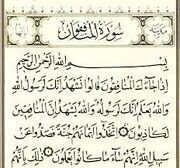 سُورَةُ المُنَافِقُونَ
بِسْمِ اللهِ الرَّحْمٰنِ الرَّحِيمِ
إِذَا جَاءَكَ الْمُنَافِقُونَ قَالُوا نَشْهَدُ إِنَّكَ لَرَسُولُ اللهِ
وَاللهُ يَعْلَمُ إِنَّكَ لَرَسُولُهُ وَاللهُ يَشْهَدُ إِنَّ الْمُنَافِقِينَ
لَكَاذِبُونَ ۝ اتَّخَذُوا أَيْمَانَهُمْ جُنَّةً فَصَدُّوا عَنْ
سَبِيلِ اللهِ إِنَّهُمْ سَاءَ مَا كَانُوا يَعْمَلُونَ ۝ ذٰلِكَ بِأَنَّهُمْ